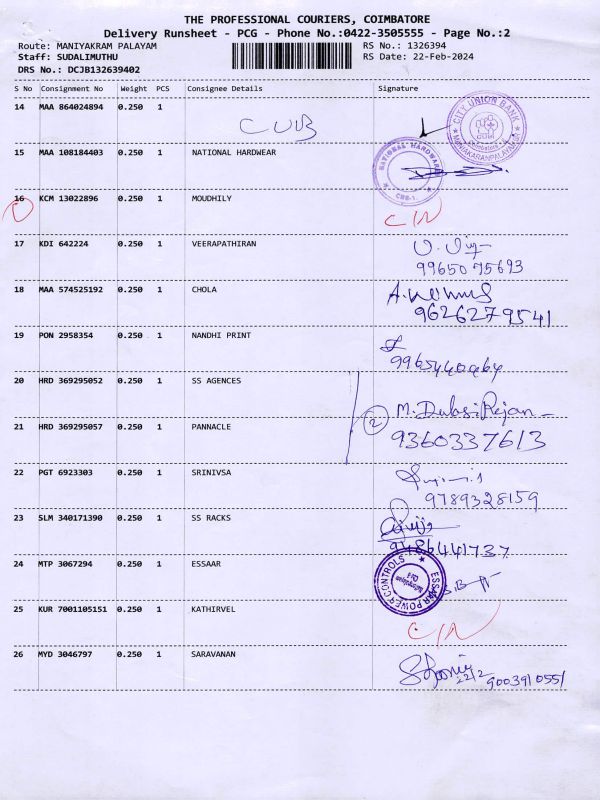 THE PROFESSIONAL COURIERS, COIMBATORE
Delivery Runsheet - PCG - Phone No.:0422-3505555 - Page No.:2
Route: MANIYAKRAM PALAYAM RS No.: 1326394
Staff: SUDALIMUTHU RS Date: 22-Feb-2024
DRS No.: DCJB132639402
S No Consignment No Weight PCS Consignee Details Signature
14 MAA 864024894 0.250 1 CUB
CITY UNION BANK
CUB
MANIAKARANPALAYAM
15 MAA 108184403 0.250 1 NATIONAL HARDWEAR
NATIONAL HARDWARE
16 KCM 13022896 0.250 1 MOUDHILY
C/N
17 KDI 642224 0.250 1 VEERAPATHIRAN
9965075693
18 MAA 574525192 0.250 1 CHOLA
9626279541
19 PON 2958354 0.250 1 NANDHI PRINT
9965440964
20 HRD 369295052 0.250 1 SS AGENCES
2 M. DulasiRajan
21 HRD 369295057 0.250 1 PANNACLE
9360337613
22 PGT 6923303 0.250 1 SRINIVSA
9789328159
23 SLM 340171390 0.250 1 SS RACKS
9486441737
24 MTP 3067294 0.250 1 ESSAAR
ESSAR POWER CONTROLS
25 KUR 7001105151 0.250 1 KATHIRVEL
C/N
26 MYD 3046797 0.250 1 SARAVANAN
22/2 9003910551